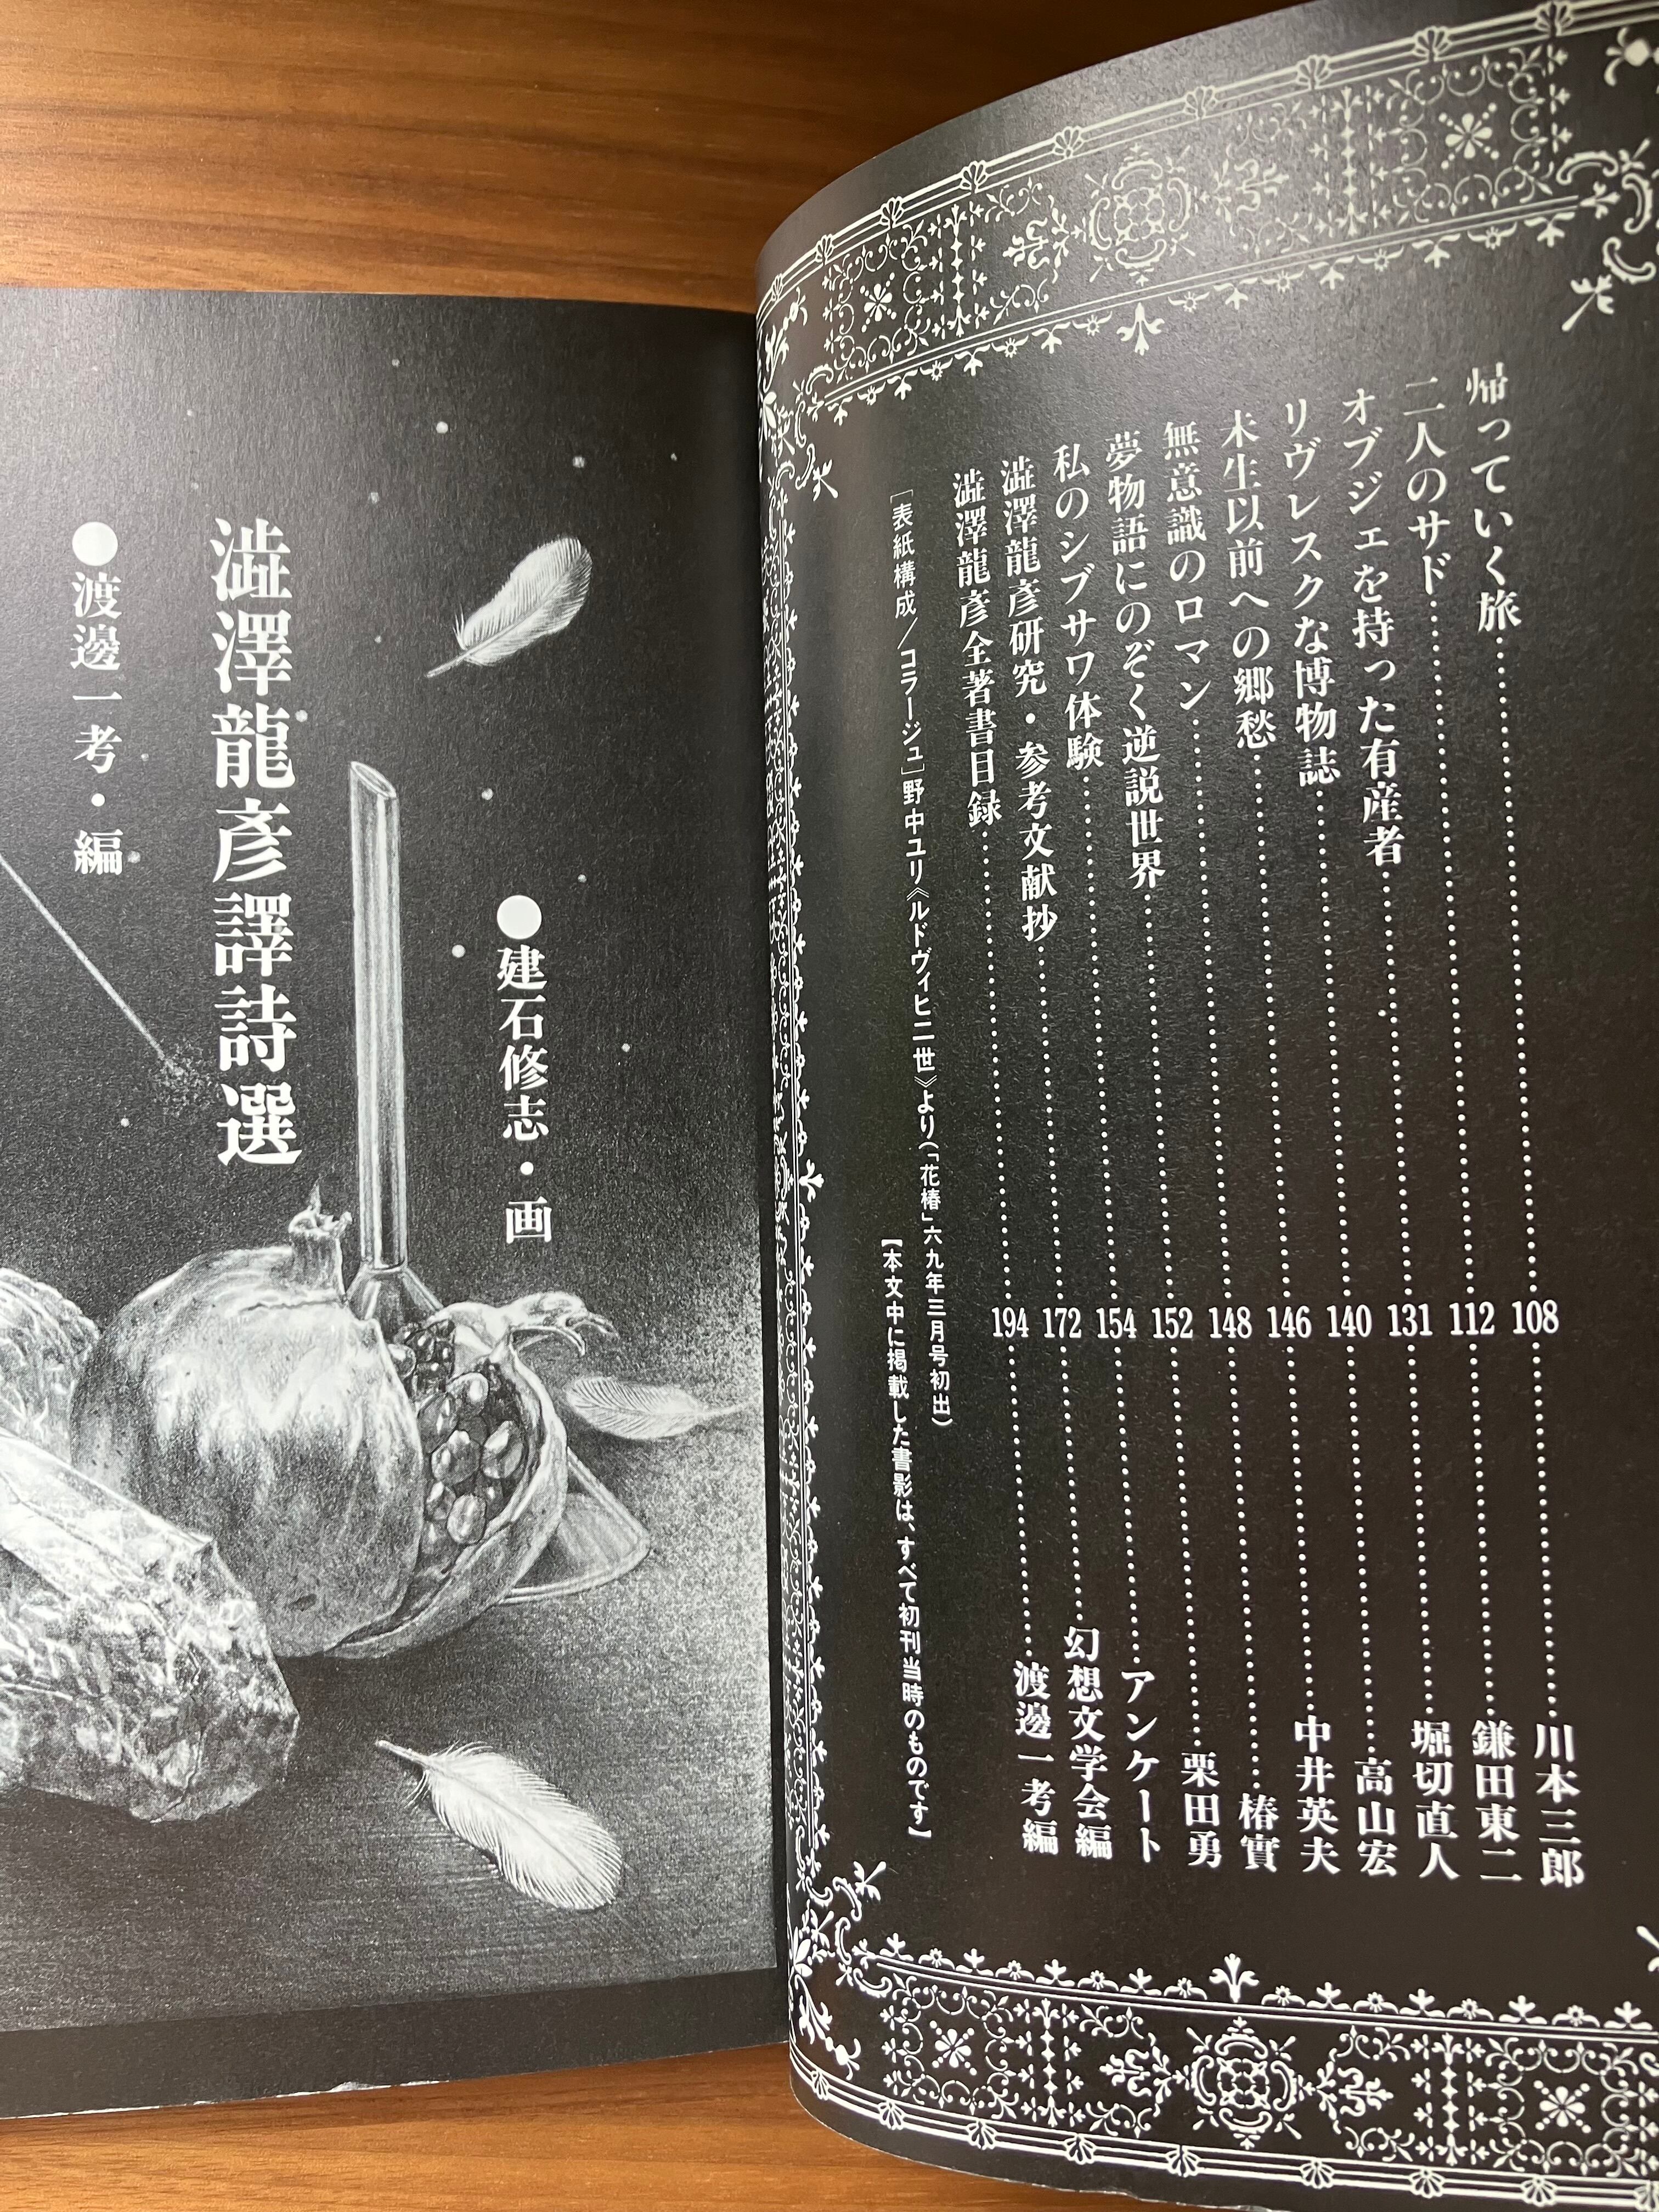 帰っていく旅……108……川本三郎
二人のサド……112……鎌田東二
オブジェを持った有産者……131……堀切直人
リヴレスクな博物誌……140……高山宏
未生以前への郷愁……146……中井英夫
無意識のロマン……148……椿實
夢物語にのぞく逆説世界……152……栗田勇
私のシブサワ体験……154……アンケート
澁澤龍彥研究・参考文献抄……172……幻想文学会編
澁澤龍彥全著書目録……194……渡邊一考編
［表紙構成／コラージュ］野中ユリ《ルドヴィヒ二世》より（「花椿」六九年三月号初出）
【本文中に掲載した書影は、すべて初刊当時のものです】
●建石修志・画
澁澤龍彥譯詩選
●渡邊一考・編